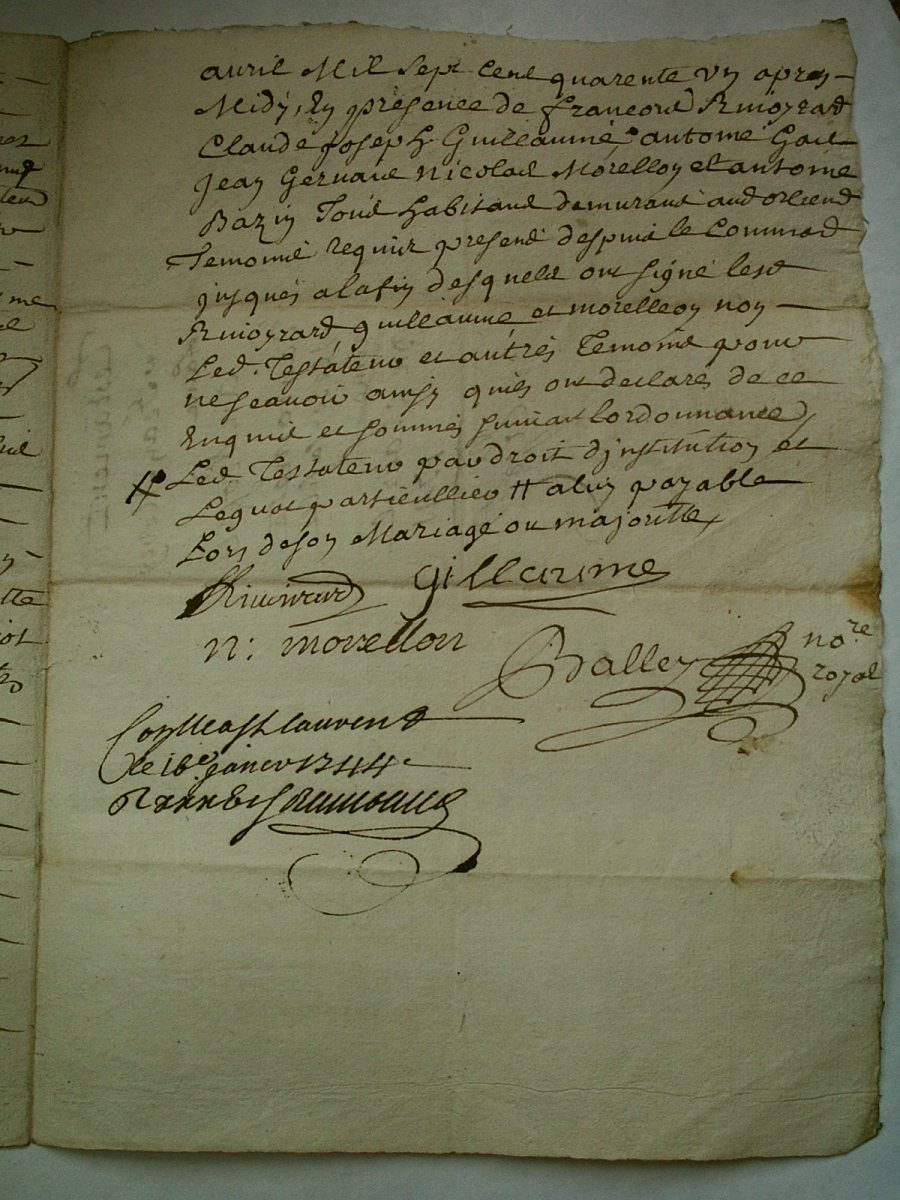 avril Mil Sept Cent quarente Un apres
Midy, En présence de francois Rivoyrard
Claude joseph Guilleaume antoine Gail
Jean Gervais nicolas Morellon et antoine
Bazin Tous habitans demurans aud
Temoins requis presens despuis le Commad
jusques a la fin desquels ont signé lesd
Rivoyrard guilleaume et morelleon non
Led. Testateur et autres Temoins pour
ne scavoir ainsy quils ont declarés de ce
Enquis et sommés suivant lordonnance
Led. Testateur par droit d'jnstitution et
Legnat partieullier # a luy payable
Lors de son Mariage ou majoritte
Gillaume
n: morellon
Balley no.re
royal
le 18e janvr 1744